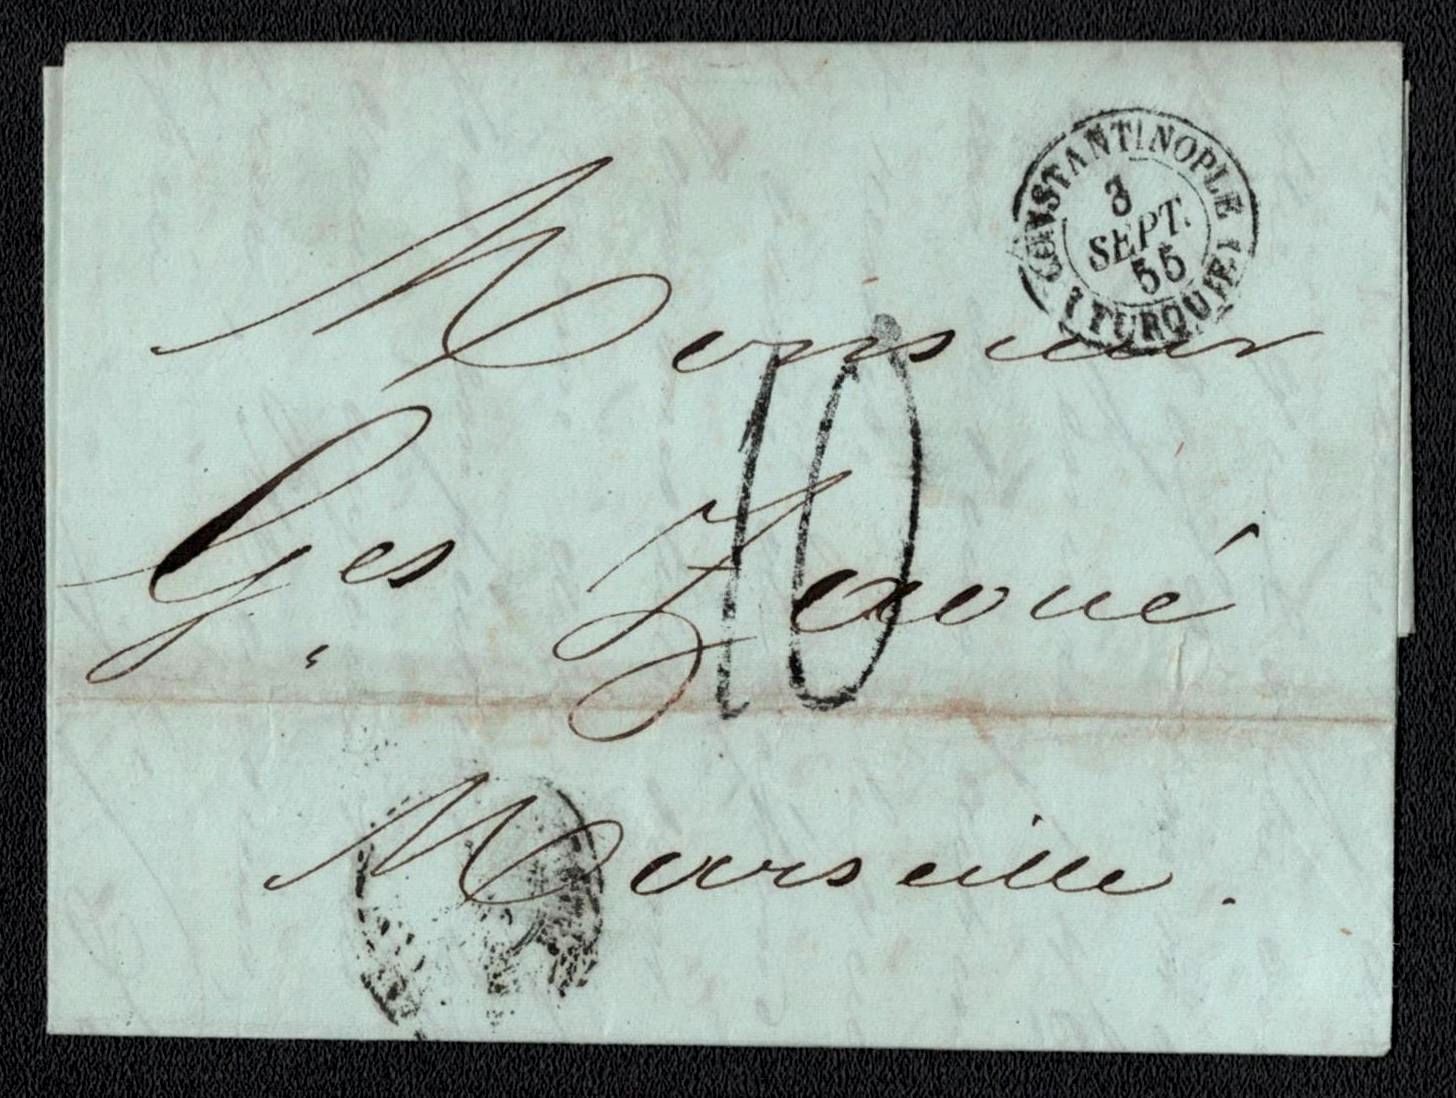 CONSTANTINOPLE
3
SEPT.
55
(TURQUIE)
Monsieur
10
Ges Zaoué
Marseille.